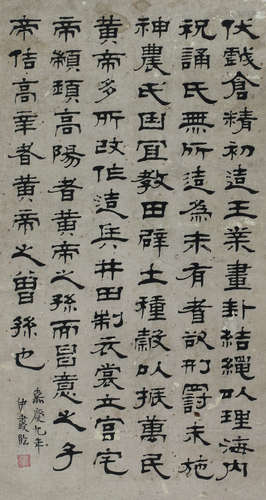 伏戲倉精初造王業畫卦結繩以理海內
祝誦氏無所造為未有耆欲刑罰未施
神農氏因宜教田辟土種穀以振萬民
黃帝多所改作造兵井田制衣裳立宮宅
帝顓頊高陽者黃帝之孫而昌意之子
帝佶高辛者黃帝之曾孫也
嘉慶九年
伊